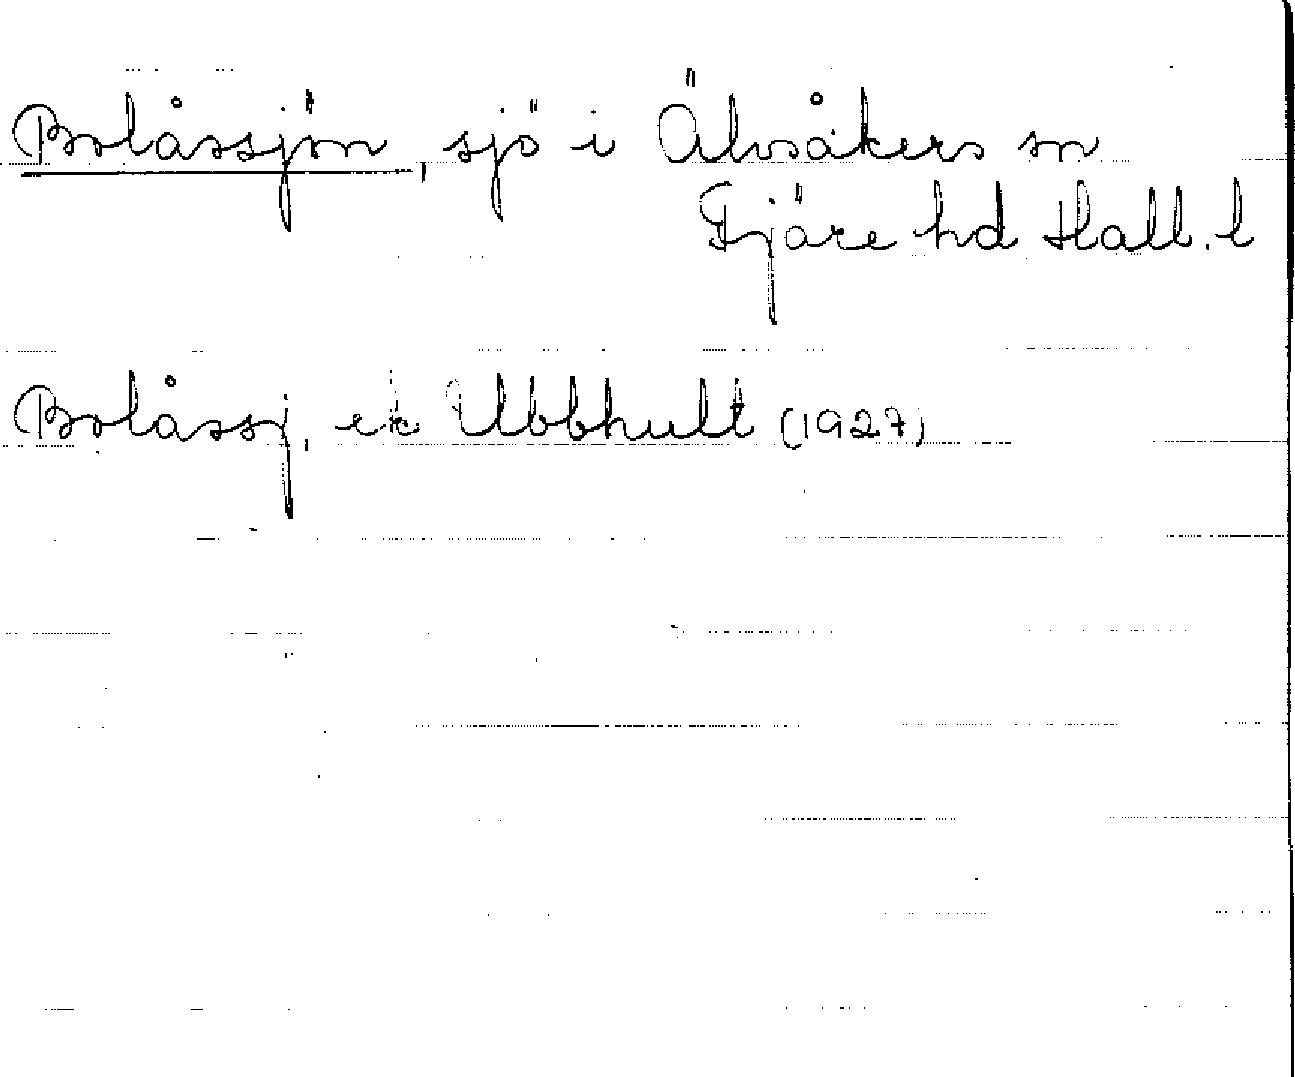 Bolåssjön, sjö i Älvsåkers sn
Fjäre hd Hall. l
Bolåssj, ek Ubbhult (1927)